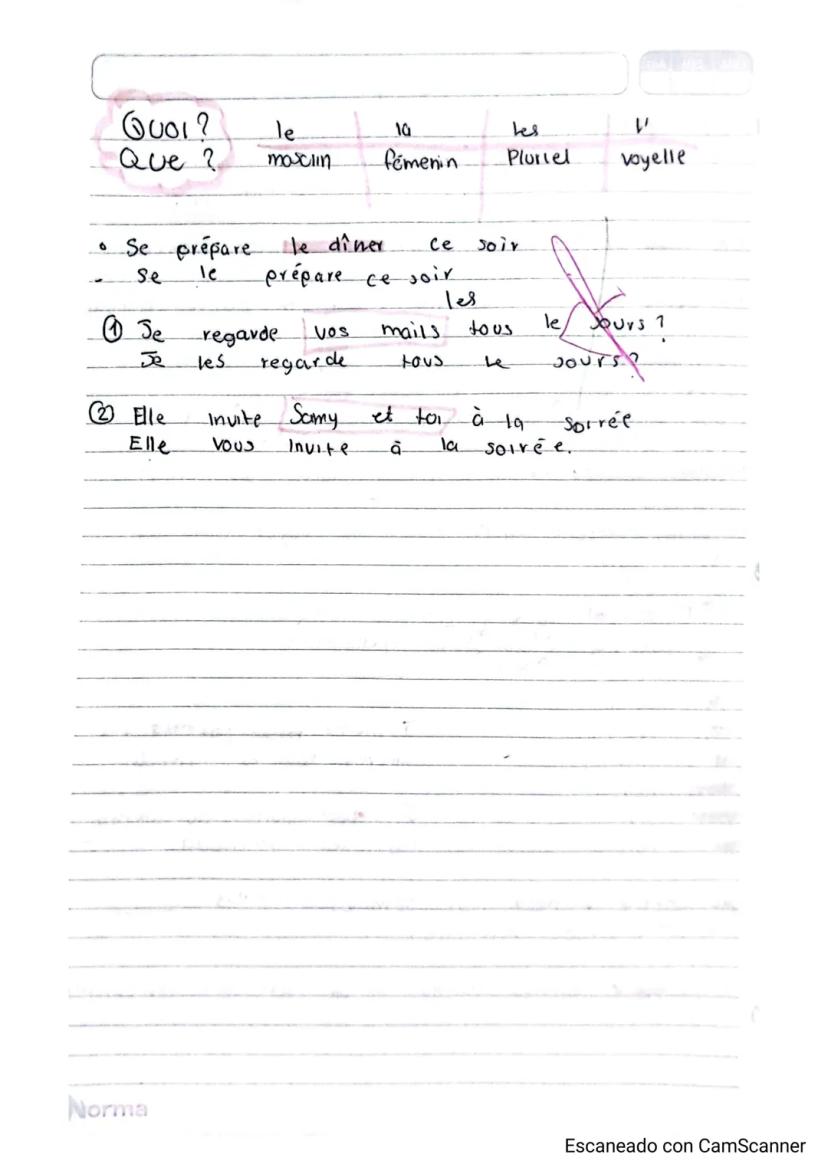 Quoi? le la les l'
Que? masclin fémenin Pluriel voyelle
Se prépare le dîner ce soir
- se le prépare ce soir
les
① Je regarde vos mails tous le Jours?
Je les regarde tous le Jours?
② Elle invite Samy et toi à la soirée
Elle vous invite à la soirée.
Norma
Escaneado con CamScanner